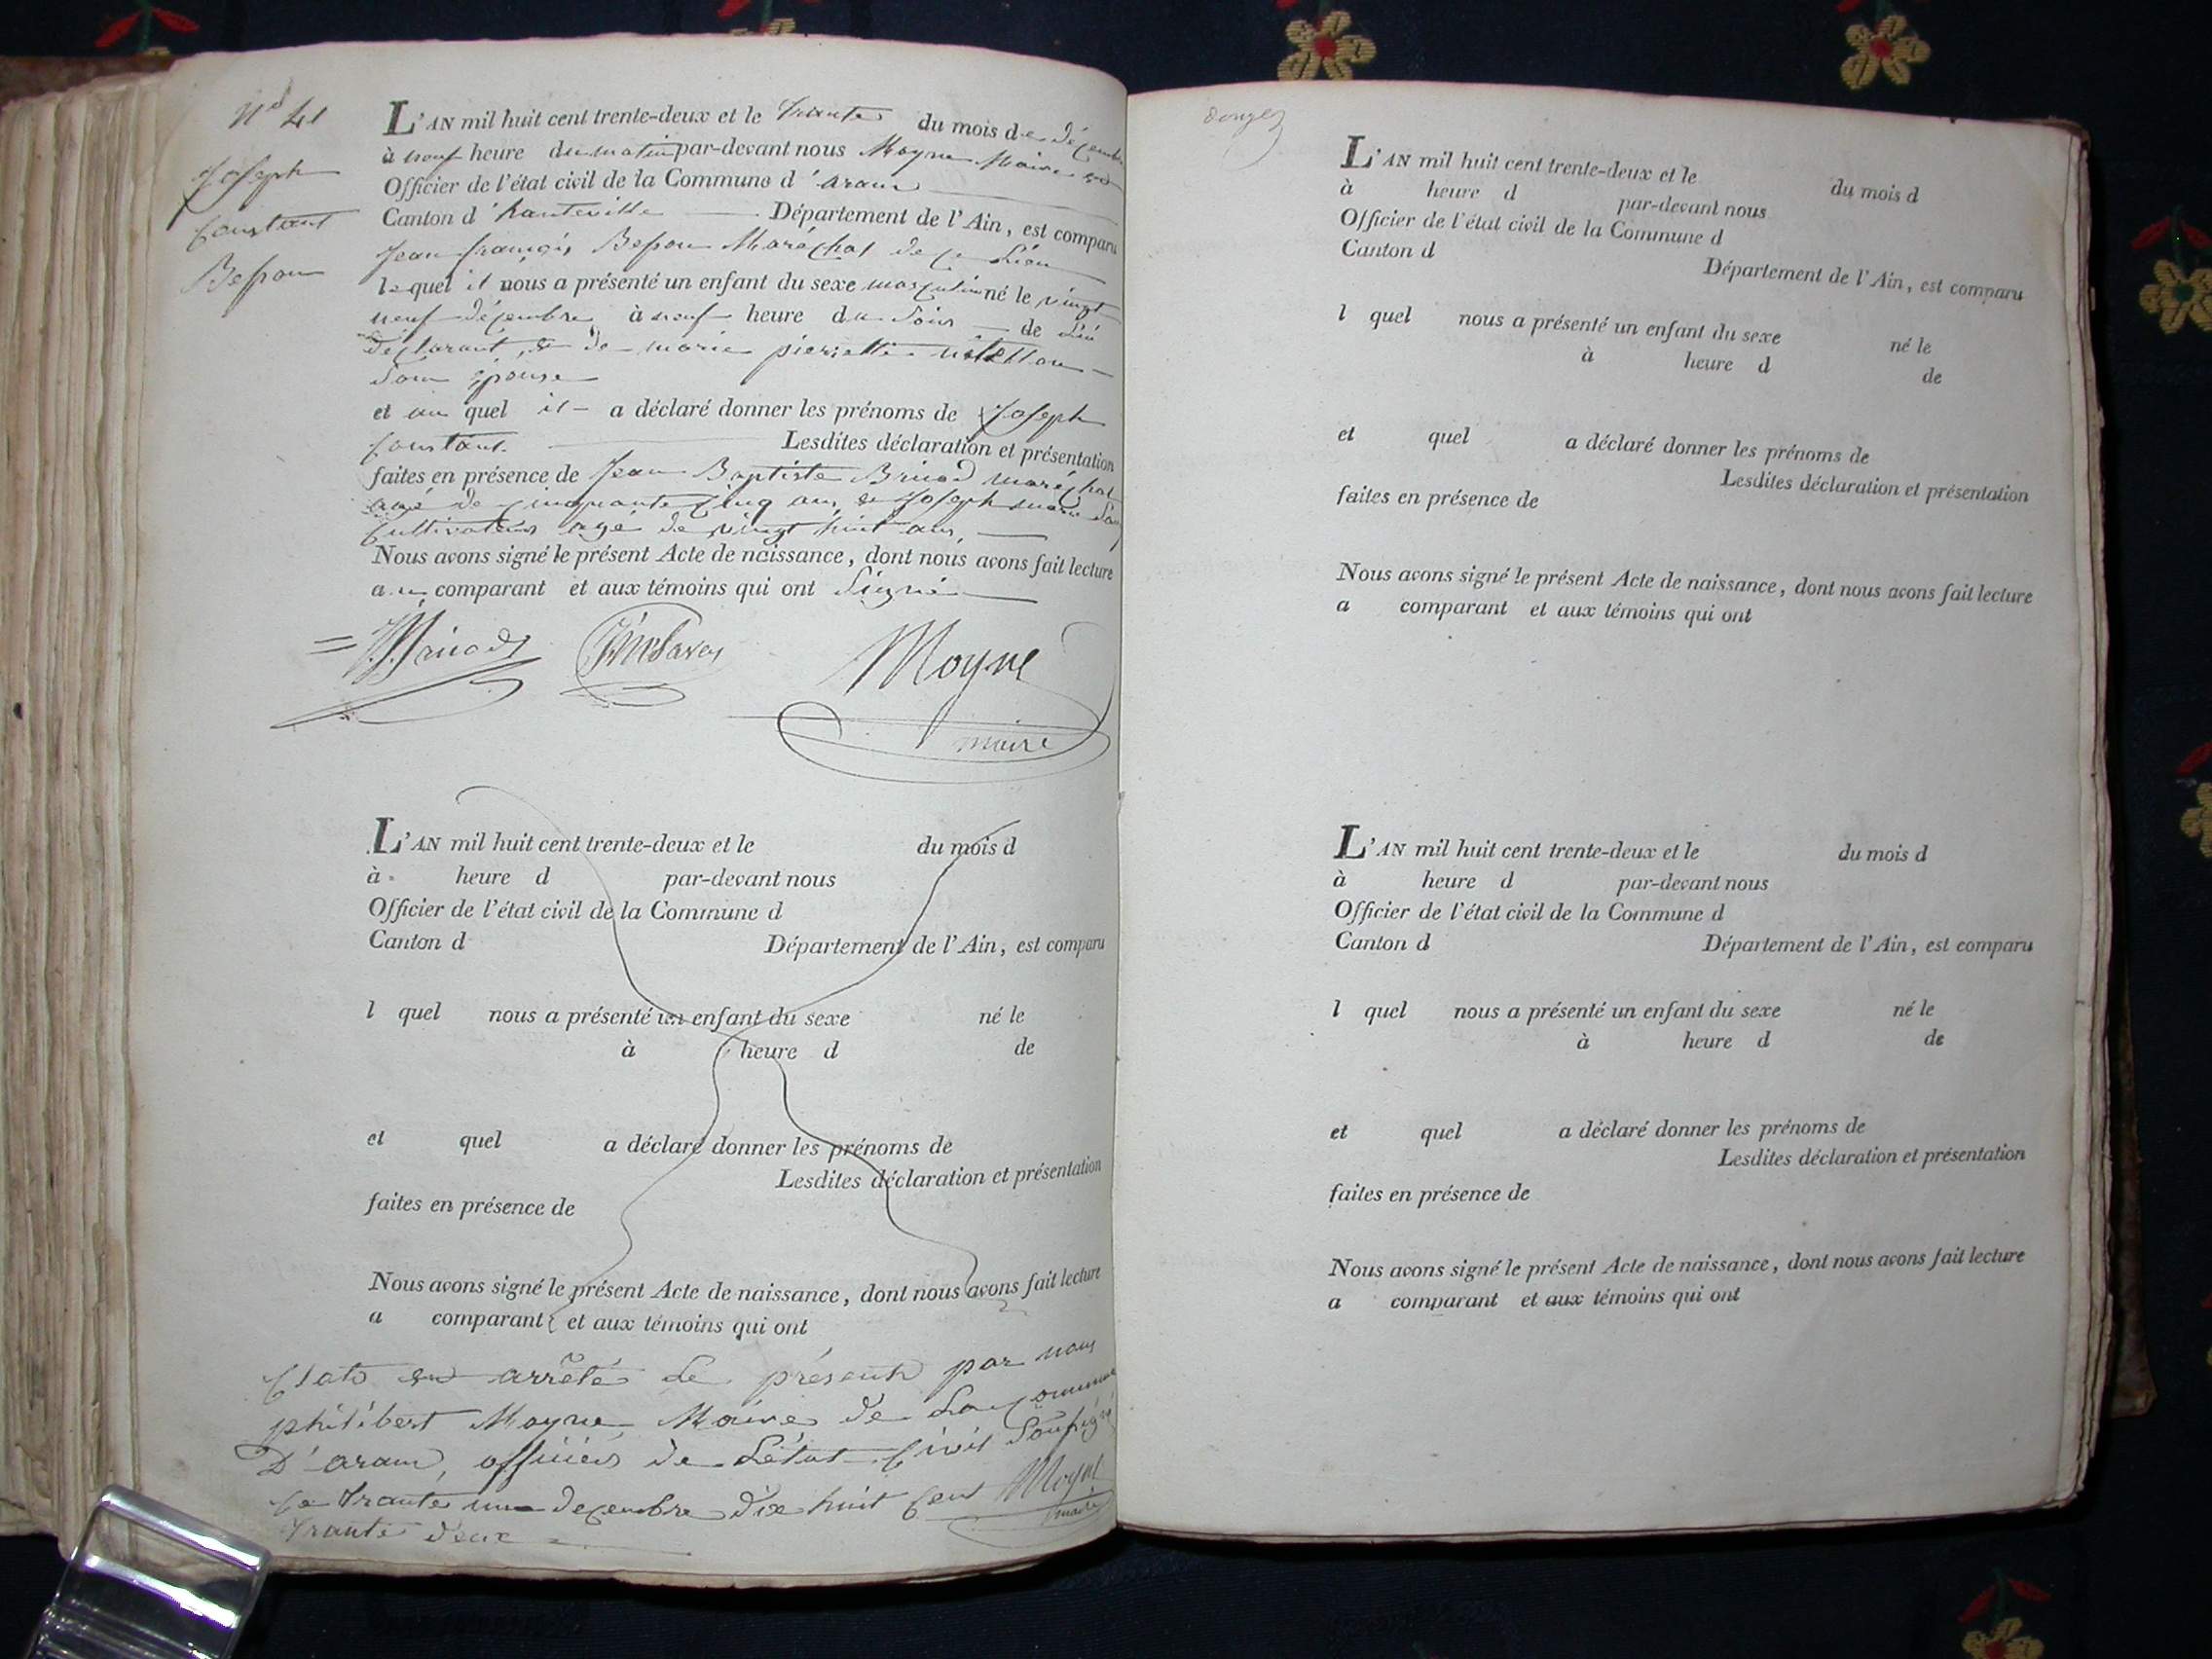 N° 41
Joseph
Constant
Besson
L'AN mil huit cent trente-deux et le trante du mois de décembre
à neuf heure du matin par-devant nous Moyne Maire et
Officier de l'état civil de la Commune d'aranc
Canton d'hauteville Département de l'Ain, est comparu
Jean françois Besson Maréchal de ce Lieu
lequel il nous a présenté un enfant du sexe masculin né le vingt
neuf décembre à neuf heure du Soir de Lui
déclarant, et de marie pierrette
Son épouse
et au quel il a déclaré donner les prénoms de Joseph
Constant. Lesdites déclaration et présentation
faites en présence de Jean Baptiste Brinod maréchal
agé de cinquante cinq ans, et Joseph marie
Cultivateur agé de vingt huit ans,
Nous avons signé le présent Acte de naissance, dont nous avons fait lecture
au comparant et aux témoins qui ont Signé
Brinod
Moyne
maire
L'AN mil huit cent trente-deux et le du mois d
à heure d par-devant nous
Officier de l'état civil de la Commune d
Canton d Département de l'Ain, est comparu
l quel nous a présenté un enfant du sexe né le
à heure d de
et quel a déclaré donner les prénoms de
Lesdites déclaration et présentation
faites en présence de
Nous avons signé le présent Acte de naissance, dont nous avons fait lecture
a comparant et aux témoins qui ont
Clato et arrêté Le présent par nous
philibert Moyne Maire de La Commune
D'aranc, officier de L'état Civil Soussigné
Ce trante un decembre dix huit Cent
trante deux
Moyne
maire
L'AN mil huit cent trente-deux et le du mois d
à heure d par-devant nous
Officier de l'état civil de la Commune d
Canton d Département de l'Ain, est comparu
l quel nous a présenté un enfant du sexe né le
à heure d de
et quel a déclaré donner les prénoms de
Lesdites déclaration et présentation
faites en présence de
Nous avons signé le présent Acte de naissance, dont nous avons fait lecture
a comparant et aux témoins qui ont
L'AN mil huit cent trente-deux et le du mois d
à heure d par-devant nous
Officier de l'état civil de la Commune d
Canton d Département de l'Ain, est comparu
l quel nous a présenté un enfant du sexe né le
à heure d de
et quel a déclaré donner les prénoms de
Lesdites déclaration et présentation
faites en présence de
Nous avons signé le présent Acte de naissance, dont nous avons fait lecture
a comparant et aux témoins qui ont